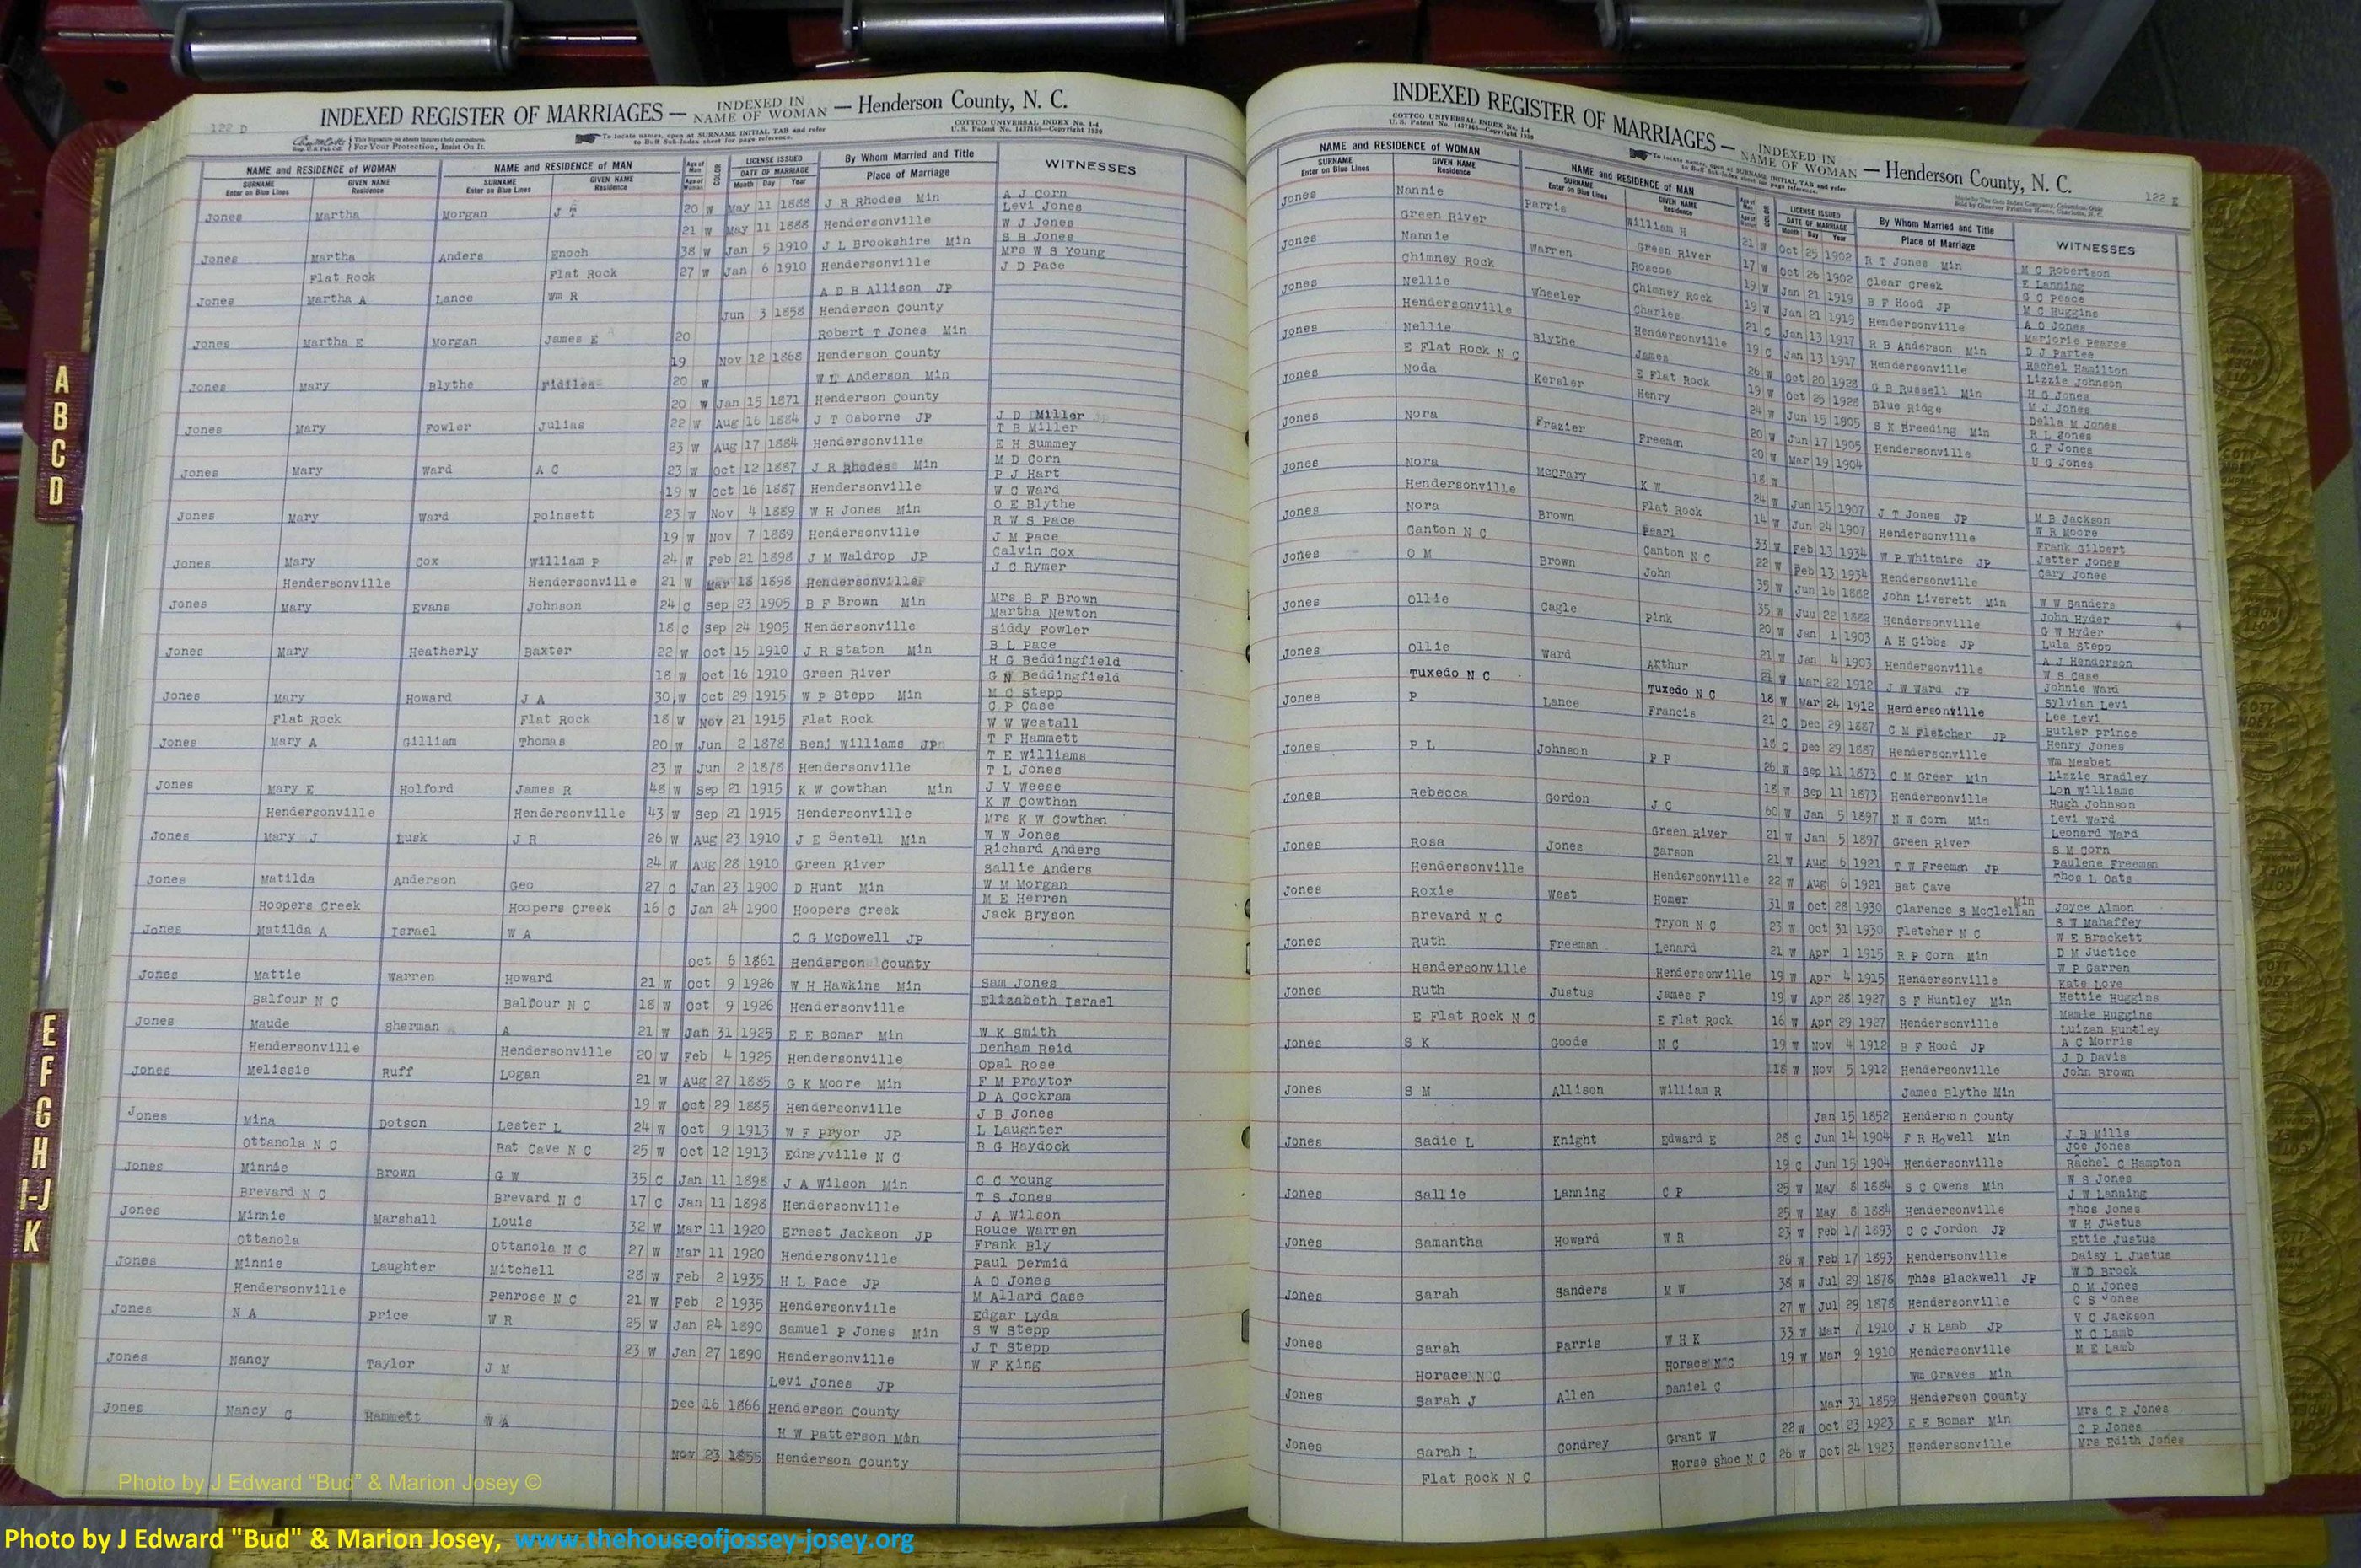 122 D
INDEXED REGISTER OF MARRIAGES — INDEXED IN NAME OF WOMAN — Henderson County, N. C.
For Your Protection, Insist On It.
To locate names, open at SURNAME INITIAL TAB and refer to Buff Sub-Index sheet for page reference.
COTTCO UNIVERSAL INDEX No. 1-4
U. S. Patent No. 1437165—Copyright 1930
NAME and RESIDENCE OF WOMAN NAME and RESIDENCE OF MAN Age of Man COLOR LICENSE ISSUED By Whom Married and Title WITNESSES
SURNAME Enter on Blue Lines GIVEN NAME Residence SURNAME Enter on Blue Lines GIVEN NAME Residence Age of Woman DATE OF MARRIAGE Month Day Year Place of Marriage
Jones Martha Morgan J T 20 W May 11 1888 J R Rhodes Min A J Corn
Levi Jones
21 W May 11 1888 Hendersonville W J Jones
Jones Martha Anders Enoch 38 W Jan 5 1910 J L Brookshire Min S B Jones
Mrs W S Young
Flat Rock Flat Rock 27 W Jan 6 1910 Hendersonville J D Pace
Jones Martha A Lance Wm R A D B Allison JP
Jun 3 1858 Henderson County
Jones Martha E Morgan James E 20 Robert T Jones Min
19 Nov 12 1868 Henderson County
Jones Mary Blythe Fidilea 20 W W L Anderson Min
20 W Jan 15 1871 Henderson County
Jones Mary Fowler Julias 22 W Aug 16 1884 J T Osborne JP J D Miller
T B Miller
23 W Aug 17 1884 Hendersonville E H Summey
Jones Mary Ward A C 23 W Oct 12 1887 J R Rhodes Min M D Corn
P J Hart
19 W Oct 16 1887 Hendersonville W C Ward
Jones Mary Ward Poinsett 23 W Nov 4 1889 W H Jones Min O E Blythe
R W S Pace
19 W Nov 7 1889 Hendersonville J M Pace
Jones Mary Cox William P 24 W Feb 21 1898 J M Waldrop JP Calvin Cox
J C Rymer
Hendersonville Hendersonville 21 W Mar 18 1898 Hendersonville
Jones Mary Evans Johnson 24 C Sep 23 1905 B F Brown Min Mrs B F Brown
Martha Newton
18 C Sep 24 1905 Hendersonville Siddy Fowler
Jones Mary Heatherly Baxter 22 W Oct 15 1910 J R Staton Min B L Pace
H G Beddingfield
18 W Oct 16 1910 Green River G N Beddingfield
Jones Mary Howard J A 30 W Oct 29 1915 W P Stepp Min M C Stepp
C P Case
Flat Rock Flat Rock 18 W Nov 21 1915 Flat Rock W W Westall
Jones Mary A Gilliam Thomas 20 W Jun 2 1878 Benj Williams JP T F Hammett
T E Williams
23 W Jun 2 1878 Hendersonville T L Jones
Jones Mary E Holford James R 48 W Sep 21 1915 K W Cowthan Min J V Weese
K W Cowthan
Hendersonville Hendersonville 43 W Sep 21 1915 Hendersonville Mrs K W Cowthan
Jones Mary J Lusk J R 26 W Aug 23 1910 J E Sentell Min W W Jones
Richard Anders
24 W Aug 28 1910 Green River Sallie Anders
Jones Matilda Anderson Geo 27 C Jan 23 1900 D Hunt Min W M Morgan
M E Herren
Hoopers Creek Hoopers Creek 16 C Jan 24 1900 Hoopers Creek Jack Bryson
Jones Matilda A Israel W A C G McDowell JP
Oct 6 1861 Henderson County
Jones Mattie Warren Howard 21 W Oct 9 1926 W H Hawkins Min Sam Jones
Balfour N C Balfour N C 18 W Oct 9 1926 Hendersonville Elizabeth Israel
Jones Maude Sherman A 21 W Jan 31 1925 E E Bomar Min W K Smith
Denham Reid
Hendersonville Hendersonville 20 W Feb 4 1925 Hendersonville Opal Rose
Jones Melissie Ruff Logan 21 W Aug 27 1885 G K Moore Min F M Praytor
D A Cockram
19 W Oct 29 1885 Hendersonville J B Jones
Jones Mina Dotson Lester L 24 W Oct 9 1913 W F Pryor JP L Laughter
Ottanola N C Bat Cave N C 25 W Oct 12 1913 Edneyville N C B G Haydock
Jones Minnie Brown G W 35 C Jan 11 1898 J A Wilson Min C C Young
T S Jones
Brevard N C Brevard N C 17 C Jan 11 1898 Hendersonville J A Wilson
Jones Minnie Marshall Louis 32 W Mar 11 1920 Ernest Jackson JP Rouce Warren
Frank Bly
Ottanola Ottanola N C 27 W Mar 11 1920 Hendersonville Paul Dermid
Jones Minnie Laughter Mitchell 28 W Feb 2 1935 H L Pace JP A O Jones
M Allard Case
Hendersonville Penrose N C 21 W Feb 2 1935 Hendersonville Edgar Lyda
Jones N A Price W R 25 W Jan 24 1890 Samuel P Jones Min S W Stepp
J T Stepp
23 W Jan 27 1890 Hendersonville W F King
Jones Nancy Taylor J M Levi Jones JP
Dec 16 1866 Henderson County
Jones Nancy C Hammett W A H W Patterson Min
Nov 23 1855 Henderson County
INDEXED REGISTER OF MARRIAGES — INDEXED IN NAME OF WOMAN — Henderson County, N. C.
COTTCO UNIVERSAL INDEX No. 1-4
U. S. Patent No. 1437165—Copyright 1930
To locate names, open at SURNAME INITIAL TAB and refer to Buff Sub-Index sheet for page reference.
122 E
NAME and RESIDENCE OF WOMAN NAME and RESIDENCE OF MAN LICENSE ISSUED By Whom Married and Title WITNESSES
SURNAME Enter on Blue Lines GIVEN NAME Residence SURNAME Enter on Blue Lines GIVEN NAME Residence DATE OF MARRIAGE Month Day Year Place of Marriage
Jones Nannie Parris William H 21 W Oct 25 1902 R T Jones Min M C Robertson
E Lanning
Green River Green River 17 W Oct 26 1902 Clear Creek G C Peace
Jones Nannie Warren Roscoe 19 W Jan 21 1919 B F Hood JP M C Huggins
A O Jones
Chimney Rock Chimney Rock 19 W Jan 21 1919 Hendersonville Marjorie Pearce
Jones Nellie Wheeler Charles 21 C Jan 13 1917 R B Anderson Min D J Partee
Rachel Hamilton
Hendersonville Hendersonville 19 C Jan 13 1917 Hendersonville Lizzie Johnson
Jones Nellie Blythe James 26 W Oct 20 1928 G B Russell Min H G Jones
M J Jones
E Flat Rock N C E Flat Rock 19 W Oct 25 1928 Blue Ridge Della M Jones
Jones Noda Kersler Henry 24 W Jun 15 1905 S K Breeding Min R L Jones
G F Jones
20 W Jun 17 1905 Hendersonville U G Jones
Jones Nora Frazier Freeman 20 W Mar 19 1904
18 W
Jones Nora McCrary K W 24 W Jun 15 1907 J T Jones JP M B Jackson
W R Moore
Hendersonville Flat Rock 14 W Jun 24 1907 Hendersonville Frank Gilbert
Jones Nora Brown Pearl 33 W Feb 13 1934 W P Whitmire JP Jetter Jones
Canton N C Canton N C 22 W Feb 13 1934 Hendersonville Cary Jones
Jones O M Brown John 35 W Jun 16 1882 John Liverett Min W W Sanders
John Hyder
35 W Juu 22 1882 Hendersonville G W Hyder
Jones Ollie Cagle Pink 20 W Jan 1 1903 A H Gibbs JP Lula Stepp
A J Henderson
21 W Jan 4 1903 Hendersonville W S Case
Jones Ollie Ward Arthur 21 W Mar 22 1912 J W Ward JP Johnie Ward
Sylvian Levi
Tuxedo N C Tuxedo N C 18 W Mar 24 1912 Hendersonville Lee Levi
Jones P Lance Francis 21 C Dec 29 1887 C M Fletcher JP Butler Prince
Henry Jones
18 C Dec 29 1887 Hendersonville Wm Nesbet
Jones P L Johnson P P 26 W Sep 11 1873 C M Greer Min Lizzie Bradley
Lon Williams
18 W Sep 11 1873 Hendersonville Hugh Johnson
Jones Rebecca Gordon J C 60 W Jan 5 1897 N W Corn Min Levi Ward
Leonard Ward
Green River 21 W Jan 5 1897 Green River S M Corn
Jones Rosa Jones Carson 21 W Aug 6 1921 T W Freeman JP Paulene Freeman
Thos L Oats
Hendersonville Hendersonville 22 W Aug 6 1921 Bat Cave
Jones Roxie West Homer 31 W Oct 28 1930 Clarence S McClellan Min Joyce Almon
S W Mahaffey
Brevard N C Tryon N C 23 W Oct 31 1930 Fletcher N C W E Brackett
Jones Ruth Freeman Lenard 21 W Apr 1 1915 R P Corn Min D M Justice
W P Garren
Hendersonville Hendersonville 19 W Apr 4 1915 Hendersonville Kate Love
Jones Ruth Justus James F 19 W Apr 28 1927 S F Huntley Min Hettie Huggins
Mamie Huggins
E Flat Rock N C E Flat Rock 16 W Apr 29 1927 Hendersonville Luizan Huntley
Jones S K Goode N C 19 W Nov 4 1912 B F Hood JP A C Morris
J D Davis
18 W Nov 5 1912 Hendersonville John Brown
Jones S M Allison William R James Blythe Min
Jan 15 1852 Henderson County
Jones Sadie L Knight Edward E 28 C Jun 14 1904 F R Howell Min J B Mills
Joe Jones
19 C Jun 15 1904 Hendersonville Rachel C Hampton
Jones Sallie Lanning C P 25 W May 8 1884 S C Owens Min W S Jones
J W Lanning
25 W May 8 1884 Hendersonville Thos Jones
Jones Samantha Howard W R 23 W Feb 17 1893 C C Jordon JP W H Justus
Ettie Justus
26 W Feb 17 1893 Hendersonville Daisy L Justus
Jones Sarah Sanders M W 38 W Jul 29 1878 Thos Blackwell JP W D Brock
O M Jones
27 W Jul 29 1878 Hendersonville C S Jones
Jones Sarah Parris W H K 33 W Mar 7 1910 J H Lamb JP V C Jackson
N C Lamb
Horace N C Horace N C 19 W Mar 9 1910 Hendersonville M E Lamb
Jones Sarah J Allen Daniel C Wm Graves Min
Mar 31 1859 Henderson County
Jones Sarah L Condrey Grant W 22 W Oct 23 1923 E E Bomar Min Mrs C P Jones
C P Jones
Flat Rock N C Horse Shoe N C 26 W Oct 24 1923 Hendersonville Mrs Edith Jones
A
B
C
D
E
F
G
H
I-J
K
Photo by J Edward “Bud” & Marion Josey ©
Photo by J Edward "Bud" & Marion Josey, www.thehouseofjossey-josey.org